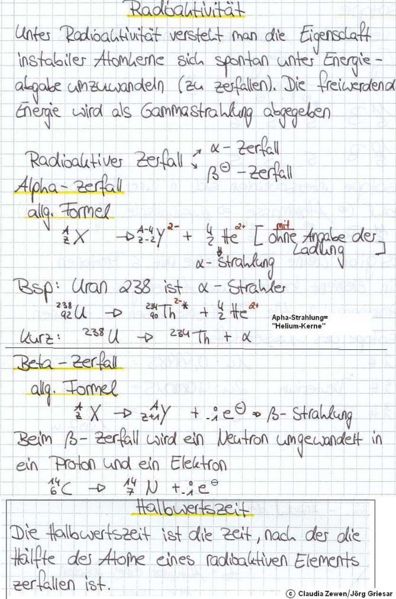 Radioaktivität
Unter Radioaktivität versteht man die Eigenschaft
instabiler Atomkerne sich spontan unter Energie-
abgabe umzuwandeln (zu zerfallen). Die freiwerdend
Energie wird als Gammastrahlung abgegeben
Radioaktiver Zerfall ↗ α - Zerfall
↘ β⊖ - Zerfall
Alpha - Zerfall
allg. Formel
ᴬ_Z X → ᴬ⁻⁴_Z-2 Y²⁻ + ⁴₂He²⁺ [mit ohne Angabe der Ladung]
α - Strahlung
Bsp: Uran 238 ist α - Strahler
²³⁸₉₂U → ²³⁴₉₀Th²⁻* + ⁴₂He²⁺
Apha-Strahlung=
"Helium-Kerne"
Kurz: ²³⁸U → ²³⁴Th + α
Beta - Zerfall
allg. Formel
ᴬ_Z X → ᴬ_Z+1 Y + ₋₁e⊖ ⇒ β - Strahlung
Beim β - Zerfall wird ein Neutron umgewandelt in
ein Proton und ein Elektron
¹⁴₆C → ¹⁴₇N + ₋₁e⊖
Halbwertszeit
Die Halbwertszeit ist die Zeit, nach der die
Hälfte der Atome eines radioaktiven Elements
zerfallen ist.
© Claudia Zewen/Jörg Griesar